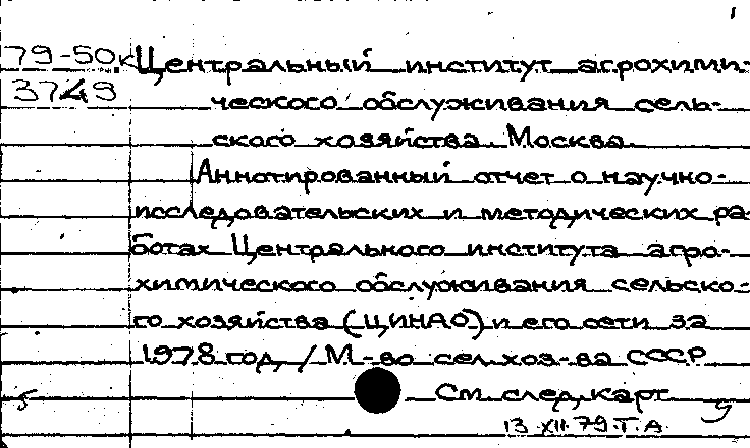 79-50к Центральный институт агрохими-
3749 ческого обслуживания сель-
ского хозяйства. Москва.
Аннотированный отчет о научно-
исследовательских и методических ра-
ботах Центрального института агро-
химического обслуживания сельско-
го хозяйства (ЦИНАО) и его сети за
1978 год, / М-во сел. хоз-ва СССР
См. след. карт.
13 XII 79. Т.А.